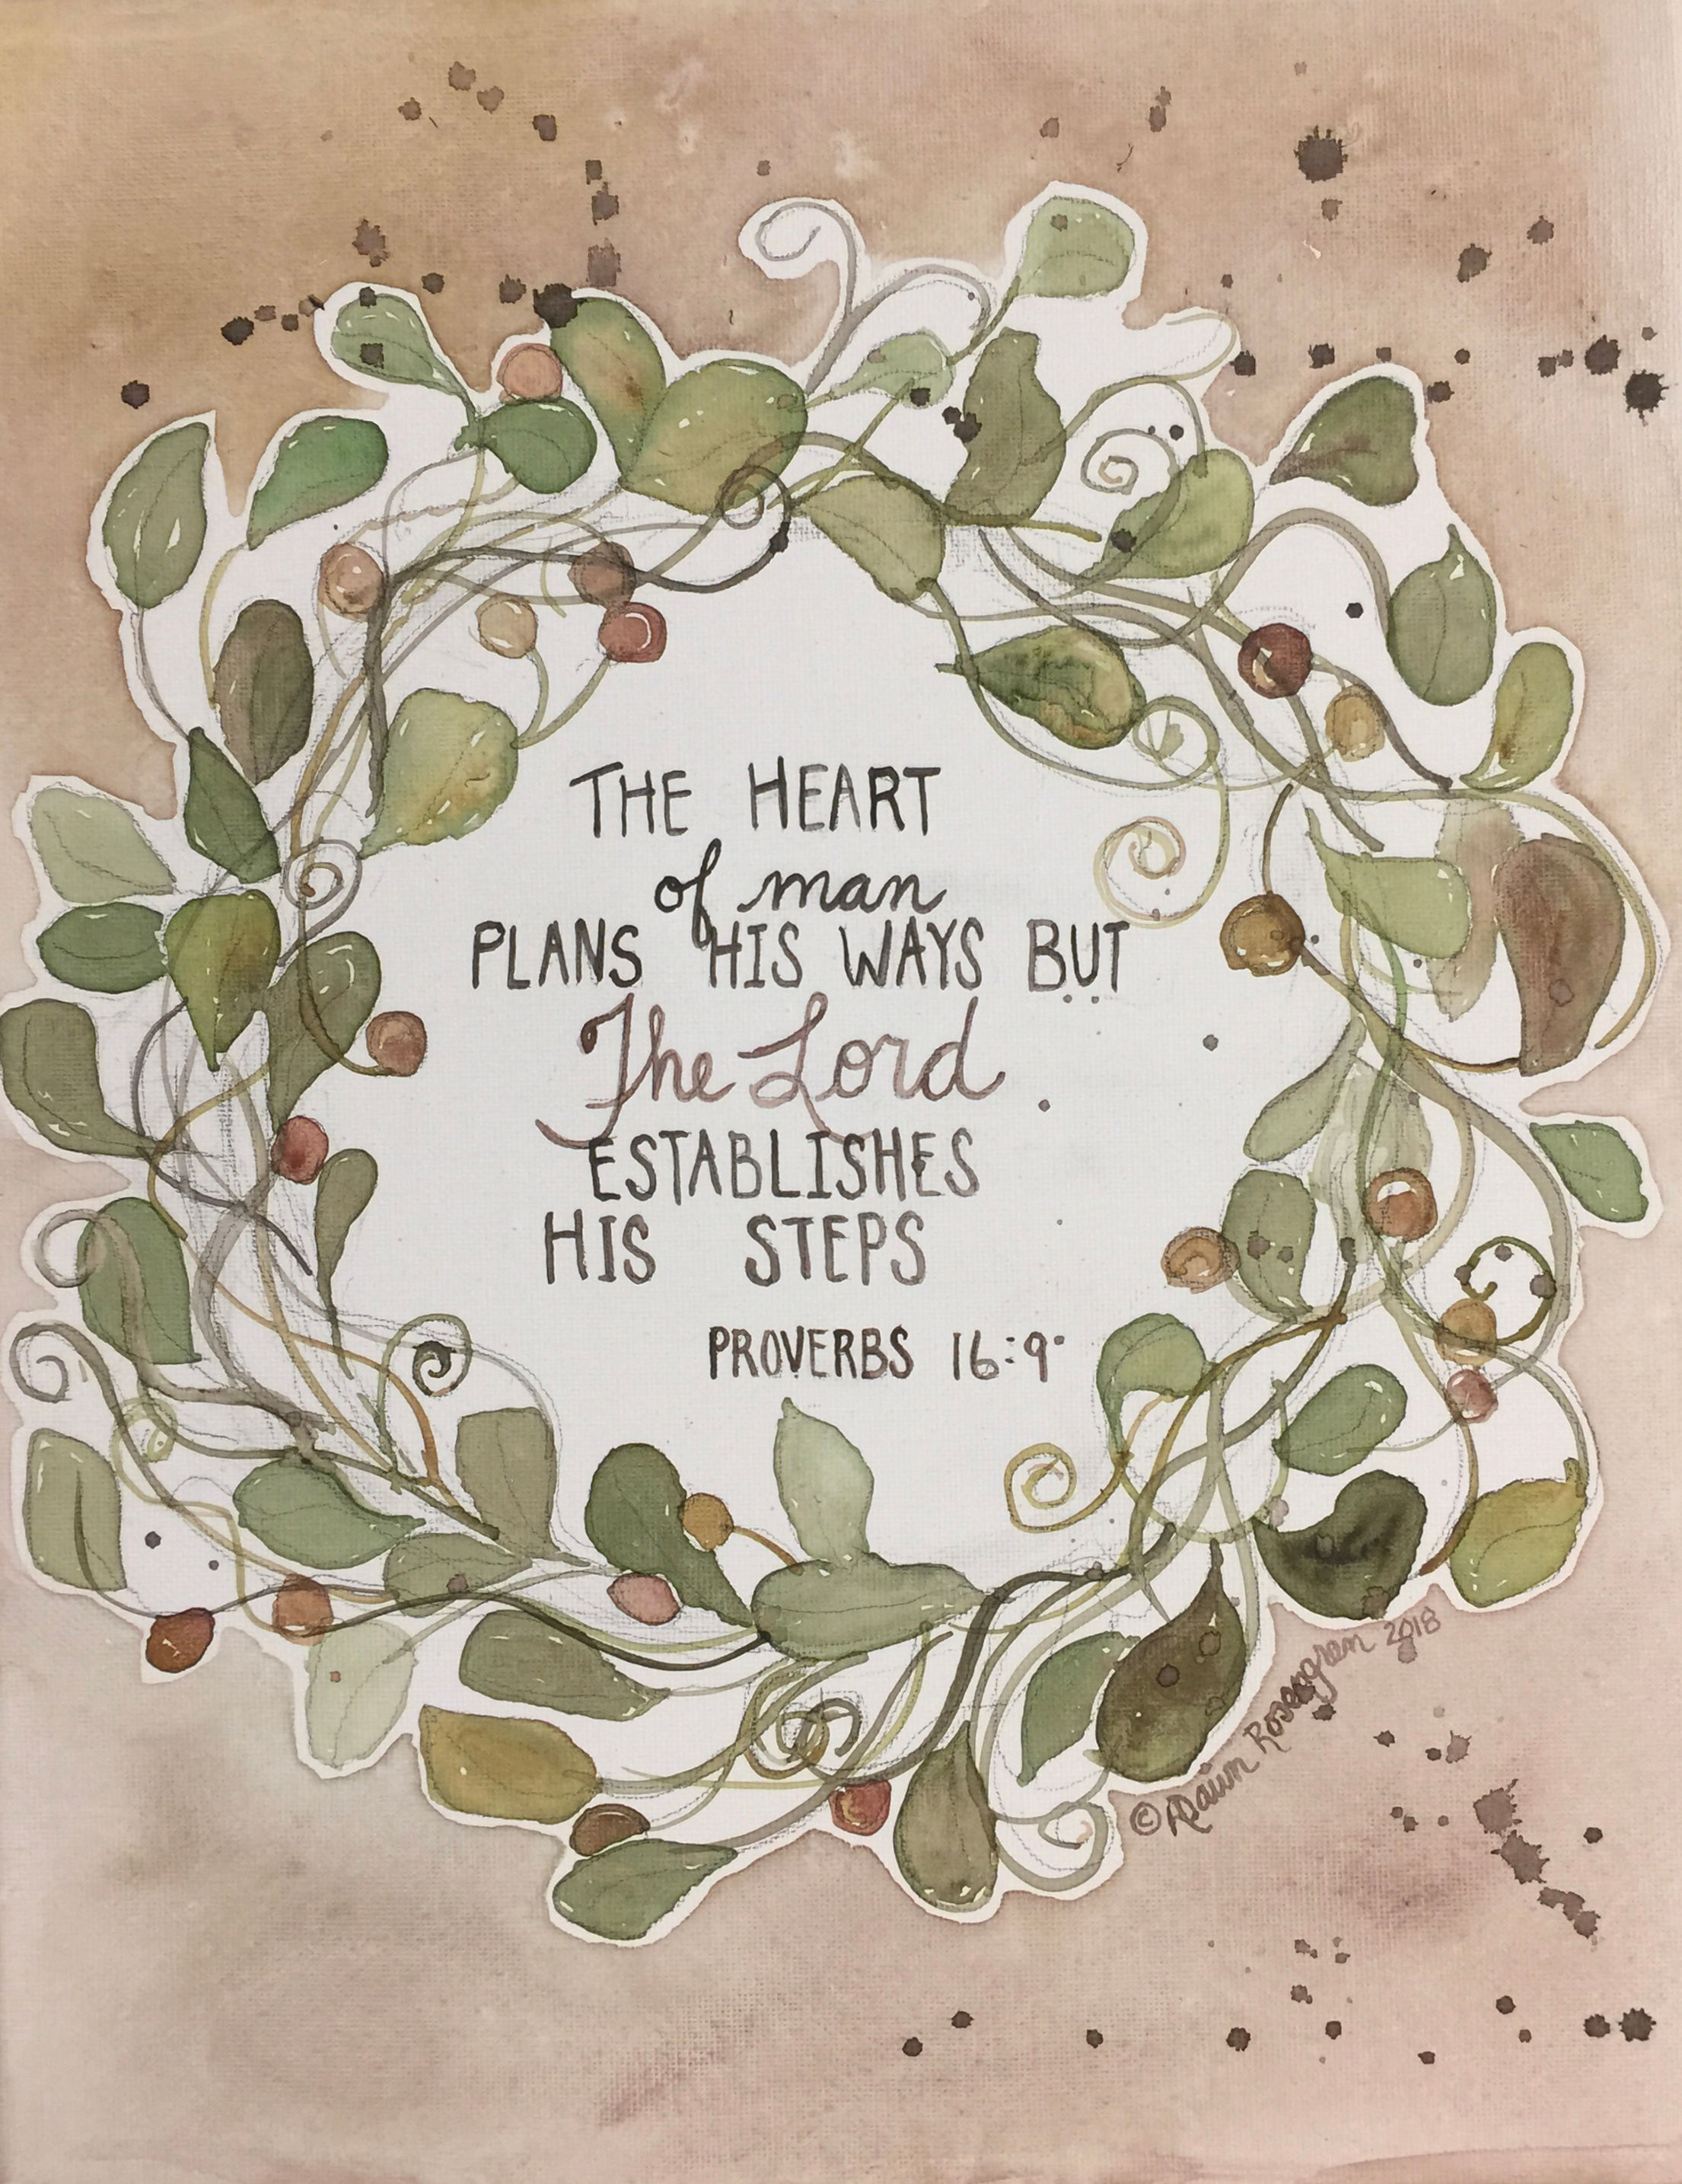 THE HEART
of man
PLANS HIS WAYS BUT
The Lord
ESTABLISHES
HIS STEPS
PROVERBS 16:9
© ADawn Rosengren 2018